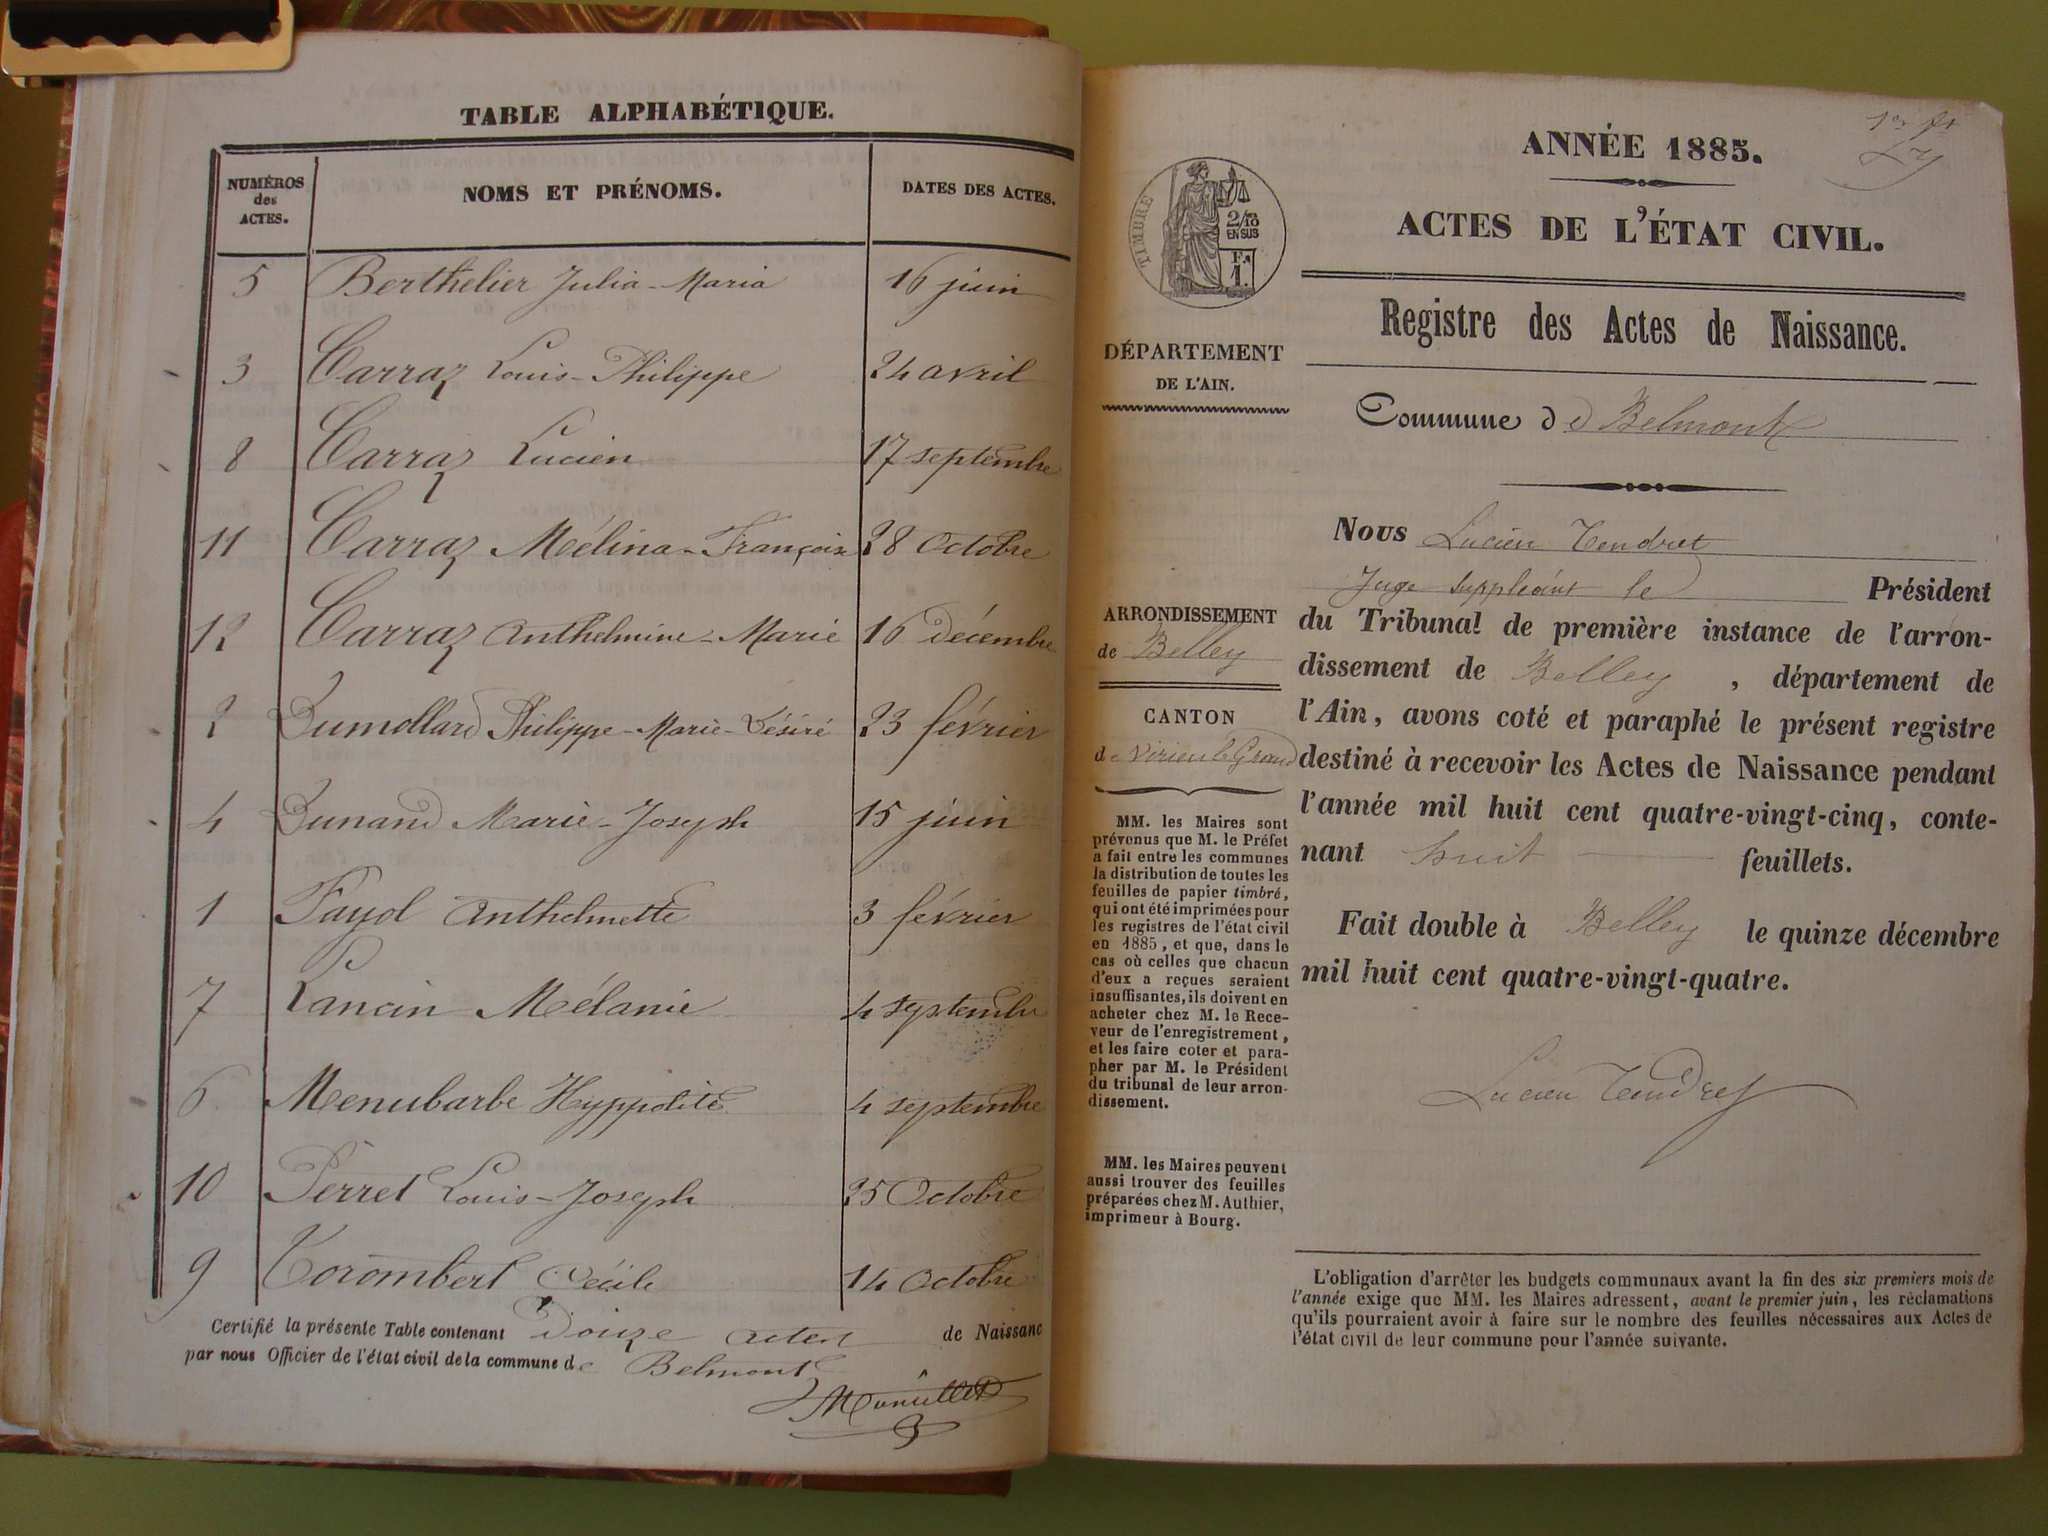 TABLE ALPHABÉTIQUE.
NUMÉROS des ACTES. NOMS ET PRÉNOMS. DATES DES ACTES.
5 Berthelier Julia-Maria 16 juin
3 Carraz Louis-Philippe 24 avril
8 Carraz Lucien 17 septembre
11 Carraz Mélina-Françoise 28 Octobre
12 Carraz Anthelmine-Marie 16 Décembre
2 Dumollard Philippe-Marie-Désiré 23 février
4 Dunand Marie-Joseph 15 juin
1 Fayol Anthelmette 3 février
7 Lancin Mélanie 4 septembre
6 Menubarbe Hyppolite 4 septembre
10 Perret Louis-Joseph 25 Octobre
9 Torombert Cécile 14 Octobre
Certifié la présente Table contenant Douze actes de Naissanc
par nous Officier de l'état civil de la commune de Belmont
1er
ANNÉE 1885.
ACTES DE L'ÉTAT CIVIL.
TIMBRE
2/10
EN SUS
Fc
1.
Registre des Actes de Naissance.
DÉPARTEMENT
DE L'AIN.
Commune d e Belmont
Nous Lucien Tendret
Juge suppléant le Président
du Tribunal de première instance de l'arron-
dissement de Belley, département de
l'Ain, avons coté et paraphé le présent registre
destiné à recevoir les Actes de Naissance pendant
l'année mil huit cent quatre-vingt-cinq, conte-
nant huit feuillets.
Fait double à Belley le quinze décembre
mil huit cent quatre-vingt-quatre.
Lucien Tendret
ARRONDISSEMENT
de Belley
CANTON
de Virieu le Grand
MM. les Maires sont
prévenus que M. le Préfet
a fait entre les communes
la distribution de toutes les
feuilles de papier timbré,
qui ont été imprimées pour
les registres de l'état civil
en 1885, et que, dans le
cas où celles que chacun
d'eux a reçues seraient
insuffisantes, ils doivent en
acheter chez M. le Rece-
veur de l'enregistrement,
et les faire coter et para-
pher par M. le Président
du tribunal de leur arron-
dissement.
MM. les Maires peuvent
aussi trouver des feuilles
préparées chez M. Authier,
imprimeur à Bourg.
L'obligation d'arrêter les budgets communaux avant la fin des six premiers mois de
l'année exige que MM. les Maires adressent, avant le premier juin, les réclamations
qu'ils pourraient avoir à faire sur le nombre des feuilles nécessaires aux Actes de
l'état civil de leur commune pour l'année suivante.